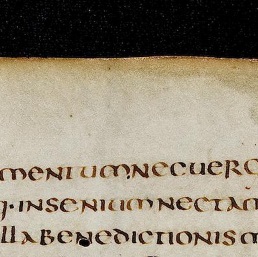 mentumnecuero
q·inseniumnectam
llabenedictionism